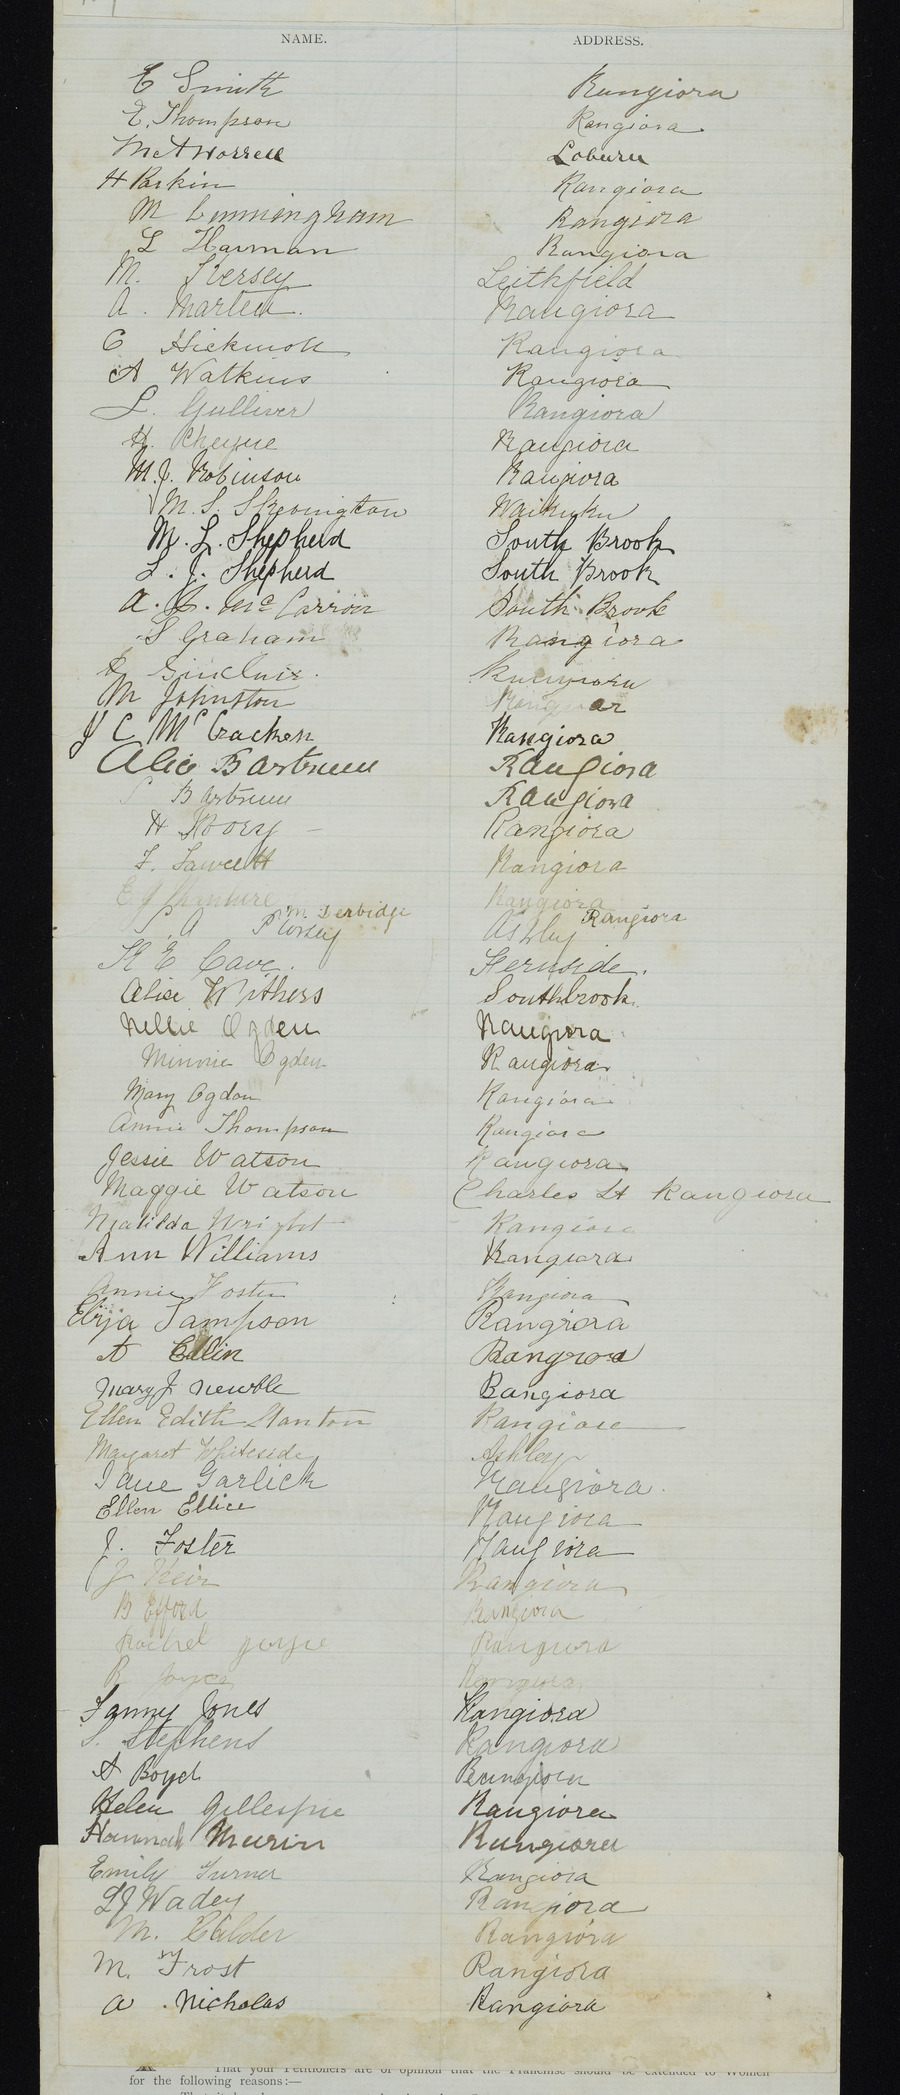 NAME. ADDRESS.
E Smith Rangiora
E. Thompson Rangiora
Loburu
H Parkin Rangiora
M Cunningham Rangiora
L Harman Rangiora
M. Kersey Leithfield
A. Rangiora
C Rangiora
A Watkins Rangiora
L. Gulliver Rangiora
H. Cheyne Rangiora
M. J. Robinson Rangiora
M. S. Skevington Waikuku
M. L. Shepherd South Brook
L. J. Shepherd South Brook
South Brook
S Graham Rangiora
Sinclair. Rangiora
M Johnston
J C McCracken Rangiora
Alice Bartrum Rangiora
Bartrum Rangiora
H Rangiora
F. Fawcett Rangiora
E J Rangiora
M. Derbidge Rangiora
S. A Ashley
K E Cave. Fernside.
Alice Withers Southbrook.
Nellie Ogden Rangiora
Minnie Ogden Rangiora
Mary Ogdon Rangiora
Annie Thompson Rangiora
Jessie Watson Rangiora
Maggie Watson Charles St Rangiora
Matilda Wright Rangiora
Ann Williams Rangiora
Annie Foster Rangiora
Eliza Sampson Rangiora
A Ellin Rangiora
Mary J Newble Rangiora
Ellen Edith Stanton Rangiora
Margaret Whiteside Ashley
Jane Garlick Rangiora.
Ellen Ellice Rangiora
J. Foster Rangiora
J Keir Rangiora
B Efford Rangiora
Rachel Rangiora
R Joyce Rangiora
Fanny Jones Rangiora
S. Stephens Rangiora
A Boyd Rangiora
Helen Gillespie Rangiora
Hannah Rangiora
Emily Turner Rangiora
L J Wadey Rangiora
M. Calder Rangiora
M. Frost Rangiora
A. Nicholas Rangiora
That your Petitioners are of opinion that the Franchise should be extended to Women
for the following reasons:—